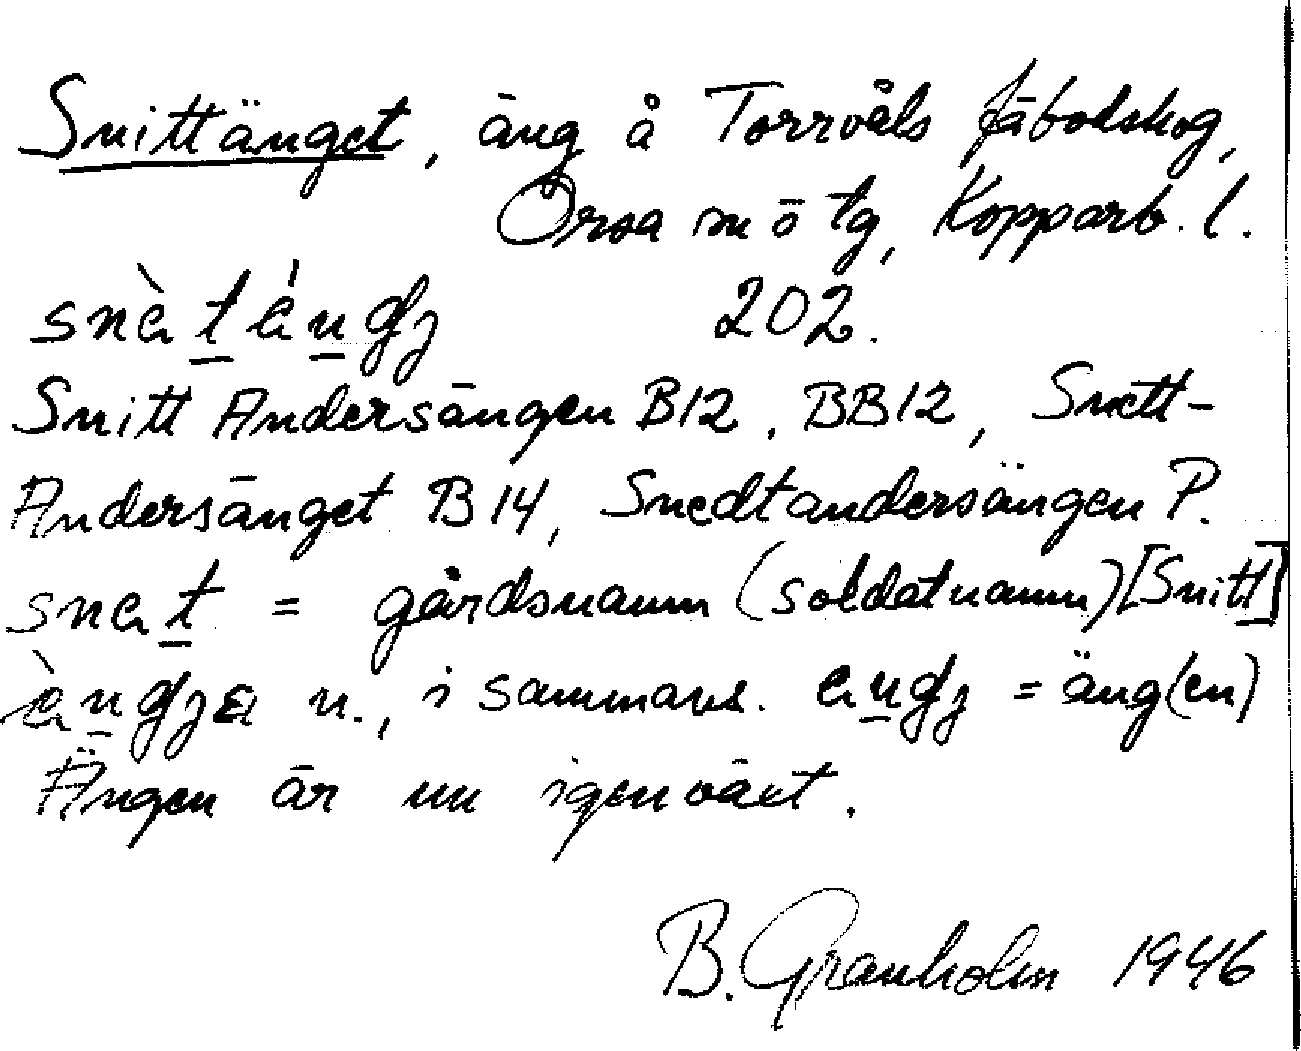 Snittänget, äng å Torrvåls fäbodskog,
Orsa sn o tg, Kopparb. l.
202.
Snitt Andersängen B12, BB12, Snett-
Andersänget B14, Snedtandersängen P.
= gårdsnamn (soldatnamn) [Snitt]
n., i sammans. = äng(en)
Ängen är nu igenväxt.
B. Granholm 1946